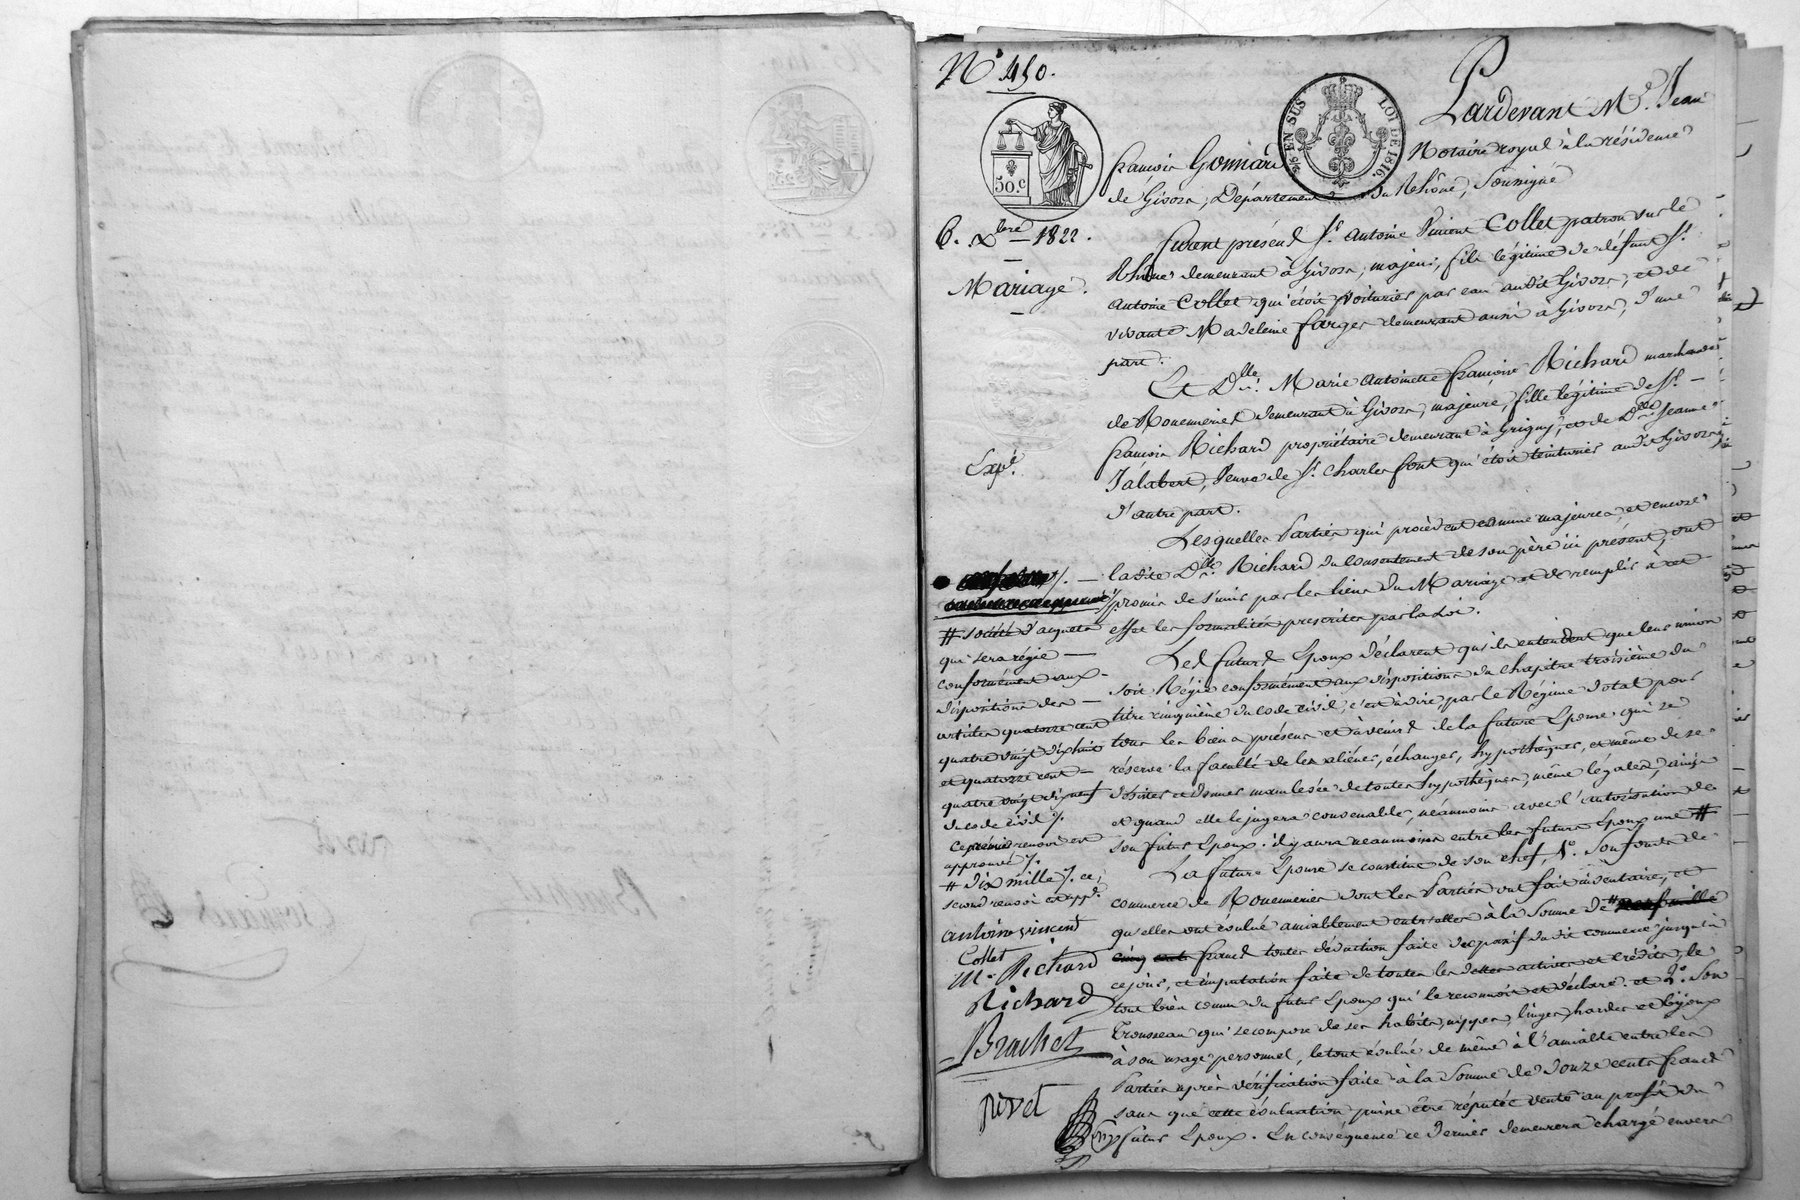 N° 450.
50.c
2/6 EN SUS LOI DE 1816.
6. Xbre 1822.
Mariage.
Expé.
Pardevant Me. Jean
françois Gonnard Notaire royal à la résidence
de Givors, Département du Rhône, Soussigné
furent présend Sr. antoine Vincent Collet patron sur le
Rhône demeurant à Givors, majeur, fils légitime de défunt Sr.
antoine Collet qui étoit Voiturier par eau audit Givors, et de
vivante Madeleine farges demeurant aussi à Givors, d'une
part.
Et Dlle. Marie antoinette françoise Richard marchande
de Rouenneries demeurant à Givors, majeure, fille légitime de Sr.
françois Richard propriétaire demeurant à Grigny, et de Dlle Jeanne
Jalabert, veuve de Sr. Charles font qui étoit teinturier audit Givors
d'autre part.
Lesquelles Parties qui procèdent comme majeures, et encore
ladite Dlle. Richard du consentement de son père ici présent, ont
promis de s'unir par les liens du Mariage et de remplir à cet
effet les formalités prescrites par la loi.
Les futurs Epoux déclarent qu'ils entendent que leur union
soit Régie conformément aux dispositions du chapitre troisième du
titre cinquième du code civil, c'est à dire, par le Régime dotal pour
tous les biens présens et à venir de la future Epouse qui se
réserve la faculté de les aliéner, échanger, hypothéquer, et même de se
désister et donner mainlevée de toutes hypothèques, même légales, ainsi
et quand elle le jugera convenable, néanmoins avec l'autorisation de
son futur Epoux. il y aura néanmoins entre les futurs Epoux une #
La future Epouse se constitue de son chef, 1°. Son fonds de
commerce de Rouenneries dont les Parties ont fait inventaire, et
qu'elles ont évalué amiablement entr'elles à la Somme de #
cinq cents francs toutes déduction faite du passif dudit commerce jusqu'à
ce jour, et imputation faite de toutes les dettes actives et crédits, le
tout bien connu du futur Epoux qui le reconnoit et déclare. et 2°. Son
Trousseau qui se compose de ses habits, nippes, linges, hardes et bijoux
à son usage personnel, le tout évalué de même à l'amiable entre les
Parties après vérification faite à la Somme de douze cents francs
sans que cette évaluation puisse être réputée vente au profit du
futur Epoux. En conséquence ce dernier demeurera chargé envers
# société d'acquets
qui sera régie
conformément aux
dispositions des
articles quatorze cent
quatre vingt dix huit
et quatorze cent
quatre vingt dix neuf
du code civil /.
ce premier renvoi est
approuvé /.
# dix mille /. ce
second renvoi est appr.
antoine vincent
Collet
M. Richard
Richard
Brachet
pivet